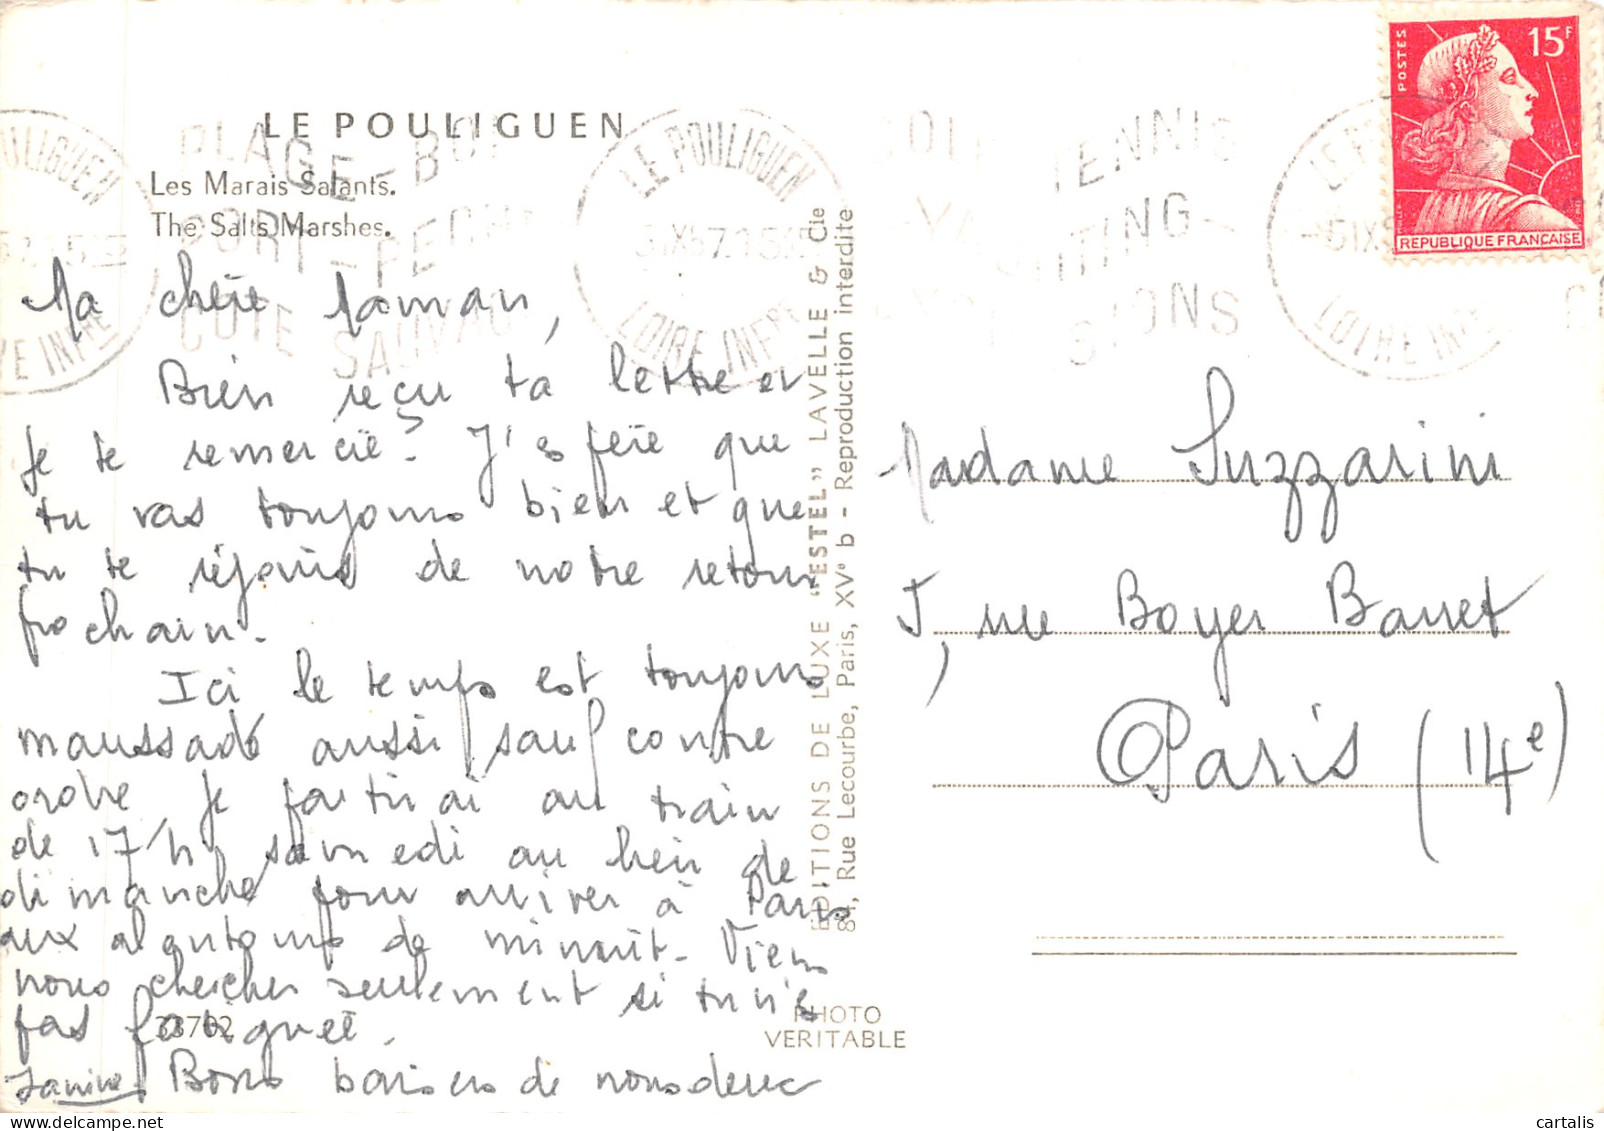 LE POULIGUEN
Les Marais Salants.
The Salts Marshes.
Ma chère Maman,
Bien reçu ta lettre et
je te remercie. J'espère que
tu vas toujours bien et que
tu te réjouis de notre retour
prochain.
Ici le temps est toujours
maussade aussi sauf contre
ordre je partirai au train
de 17h samedi au lieu de
dimanche pour arriver à Paris
aux alentours de minuit. Viens
nous chercher seulement si tu n'es
pas fatiguée.
Bons baisers de nous deux
Janine
33702
EDITIONS DE LUXE "ESTEL" LAVELLE & Cie
84, Rue Lecourbe, Paris, XVe b - Reproduction interdite
PHOTO
VERITABLE
PLAGE-BOI
PORT-PECHE
COTE SAUVAGE
LE POULIGUEN
LOIRE INFRE
TENNIS
YACHTING
SIONS
POSTES
15F
REPUBLIQUE FRANCAISE
Madame Suzzarini
5, rue Boyer Barret
Paris (14e)
cartalis